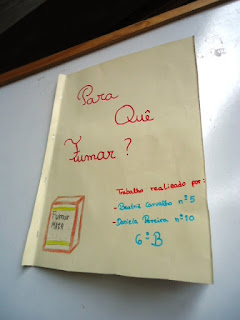 Para
Quê
Fumar?
Trabalho realizado por:
- Beatriz Carvalho nº5
- Daniela Pereira nº10
6º B
Fumar
Mata